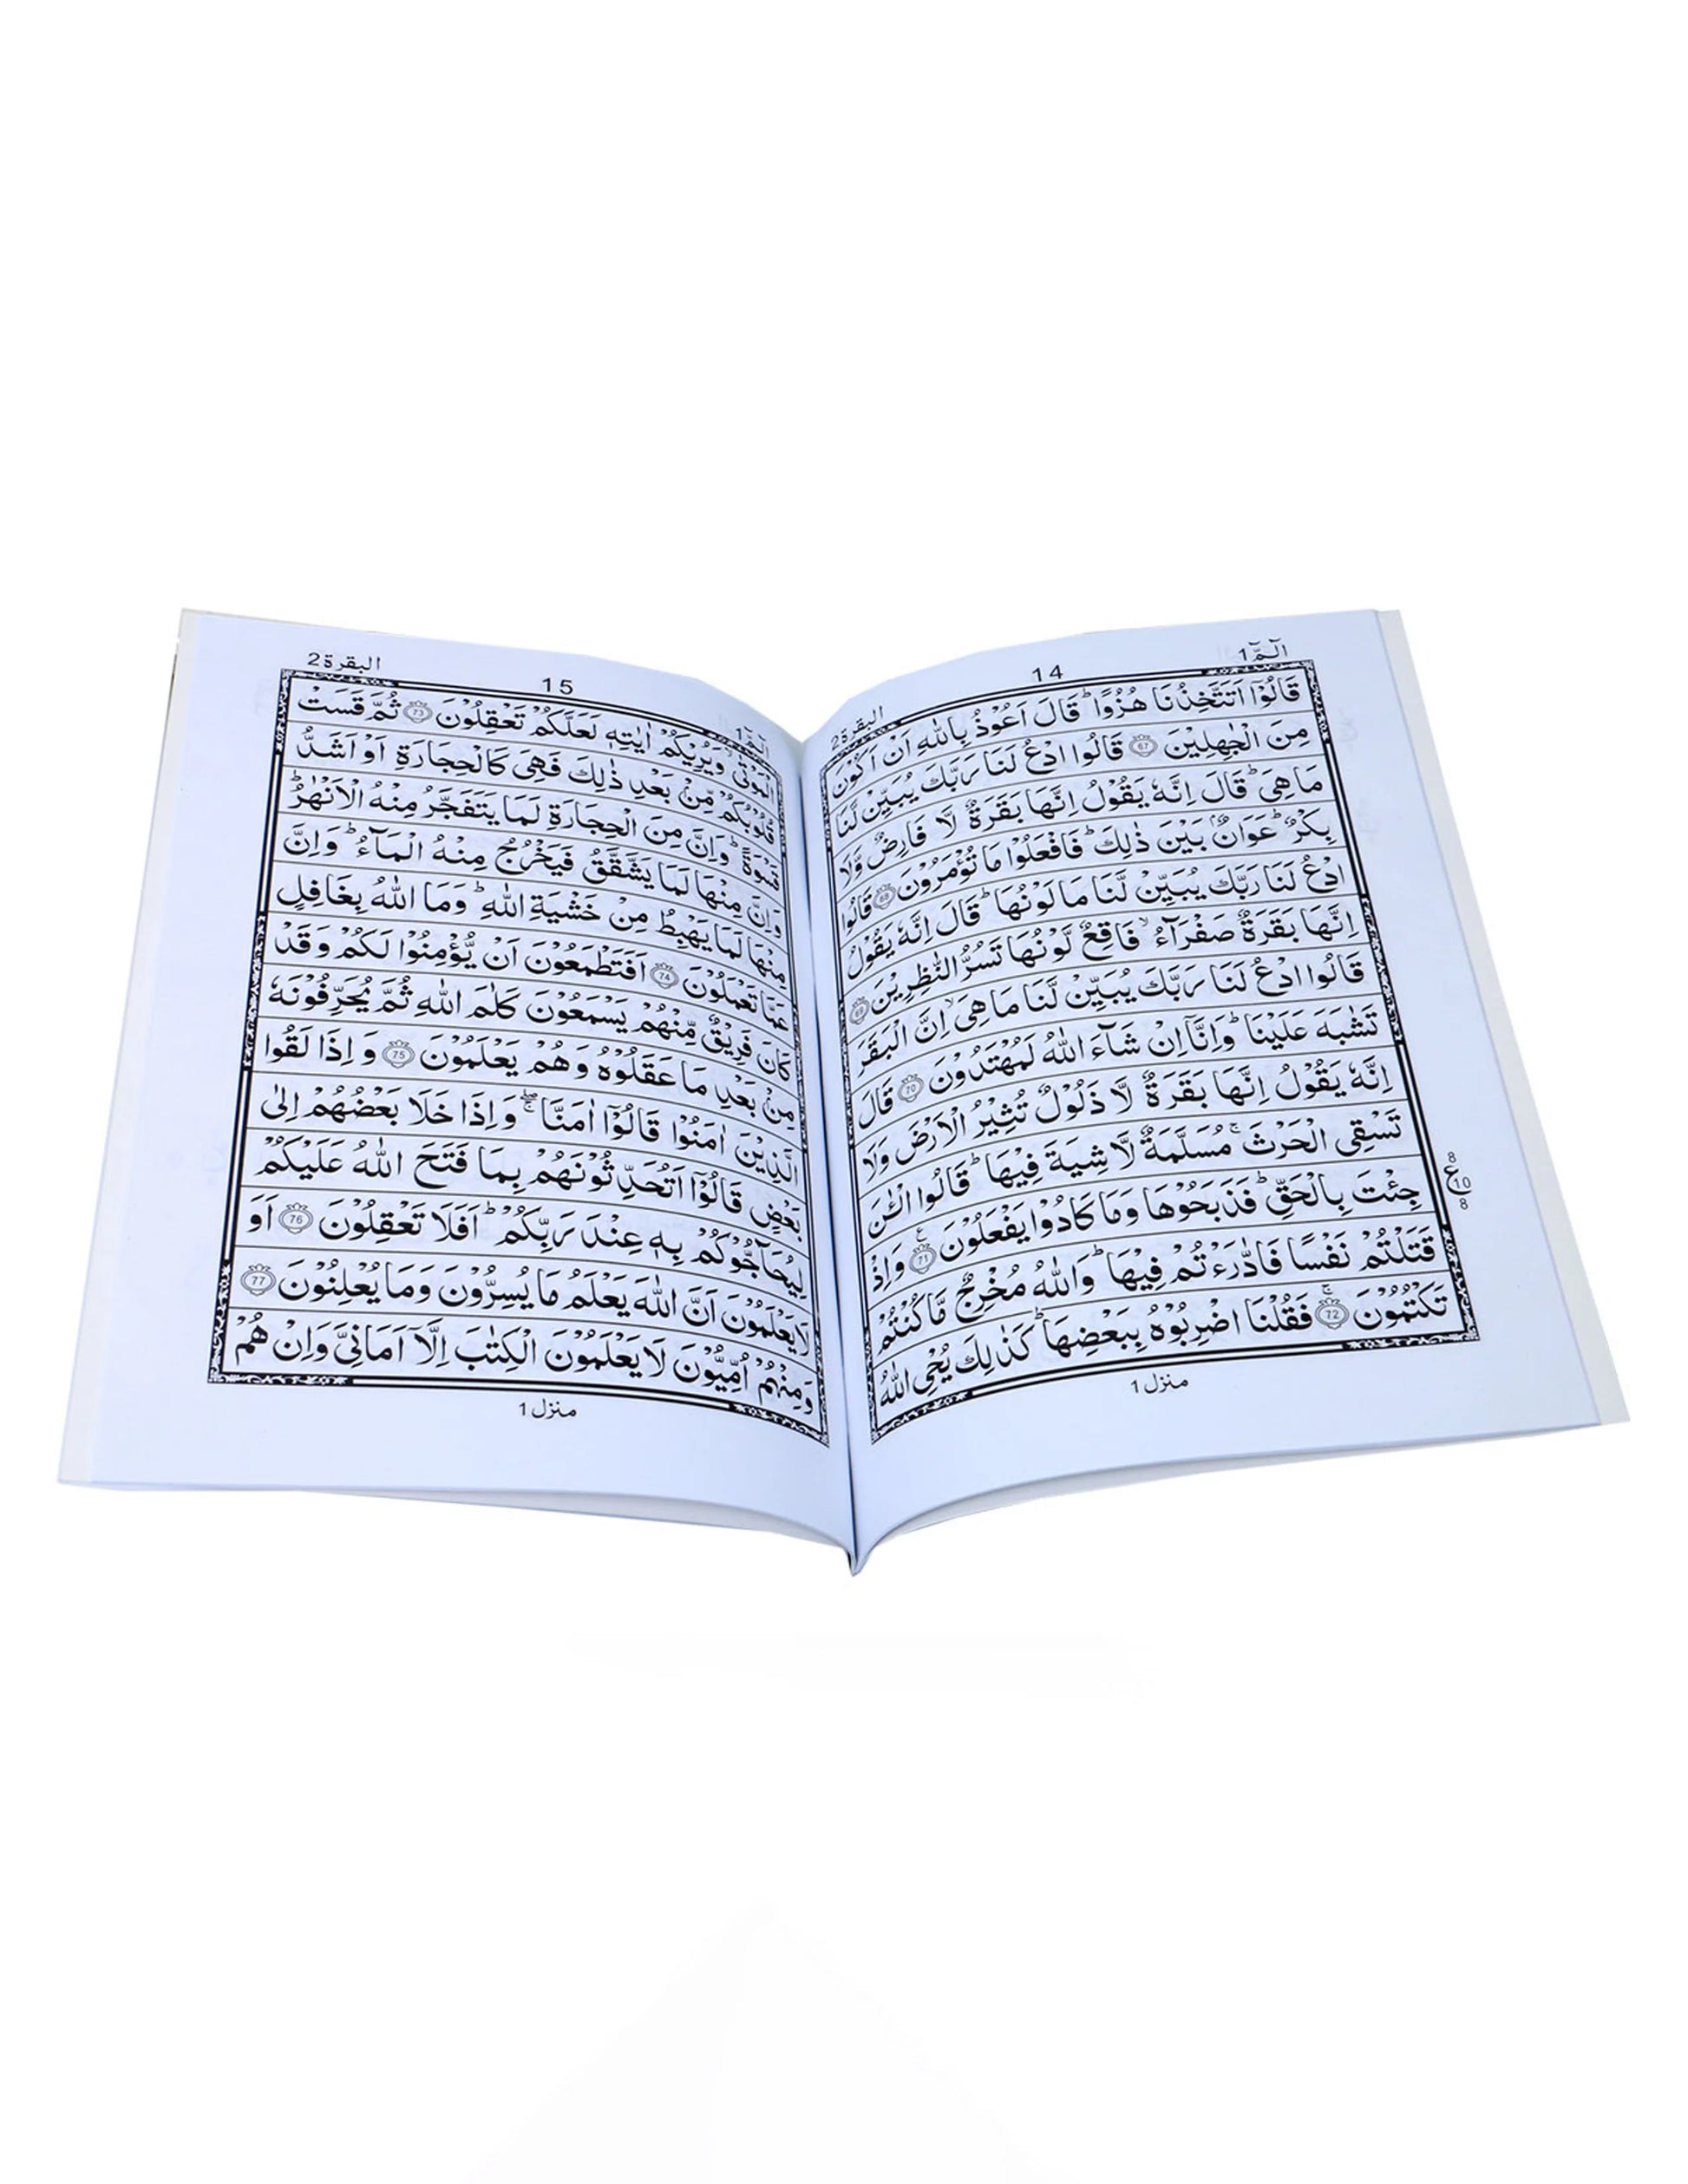 الٓمّٓ 1
14
البقرة 2
قَالُوْٓا اَتَتَّخِذُنَا هُزُوًا ؕ قَالَ اَعُوْذُ بِاللّٰهِ اَنْ اَكُوْنَ
مِنَ الْجٰهِلِيْنَ 67 قَالُوا ادْعُ لَنَا رَبَّكَ يُبَيِّنْ لَّنَا
مَا هِىَ ؕ قَالَ اِنَّهٗ يَقُوْلُ اِنَّهَا بَقَرَةٌ لَّا فَارِضٌ وَّلَا
بِكْرٌ ؕ عَوَانٌۢ بَيْنَ ذٰلِكَ ؕ فَافْعَلُوْا مَا تُؤْمَرُوْنَ 68 قَالُوا
ادْعُ لَنَا رَبَّكَ يُبَيِّنْ لَّنَا مَا لَوْنُهَا ؕ قَالَ اِنَّهٗ يَقُوْلُ
اِنَّهَا بَقَرَةٌ صَفْرَآءُ ۙ فَاقِعٌ لَّوْنُهَا تَسُرُّ النّٰظِرِيْنَ 69
قَالُوا ادْعُ لَنَا رَبَّكَ يُبَيِّنْ لَّنَا مَا هِىَ ۙ اِنَّ الْبَقَرَ
تَشٰبَهَ عَلَيْنَا ؕ وَاِنَّآ اِنْ شَآءَ اللّٰهُ لَمُهْتَدُوْنَ 70 قَالَ
اِنَّهٗ يَقُوْلُ اِنَّهَا بَقَرَةٌ لَّا ذَلُوْلٌ تُثِيْرُ الْاَرْضَ وَلَا
تَسْقِى الْحَرْثَ ۚ مُسَلَّمَةٌ لَّا شِيَةَ فِيْهَا ؕ قَالُوا الْـٰٔنَ
جِئْتَ بِالْحَقِّ ؕ فَذَبَحُوْهَا وَمَا كَادُوْا يَفْعَلُوْنَ 71 وَاِذْ
قَتَلْتُمْ نَفْسًا فَادّٰرَءْتُمْ فِيْهَا ؕ وَاللّٰهُ مُخْرِجٌ مَّا كُنْتُمْ
تَكْتُمُوْنَ 72 فَقُلْنَا اضْرِبُوْهُ بِبَعْضِهَا ؕ كَذٰلِكَ يُحْىِ اللّٰهُ
منزل 1
8
ع 10
8
الٓمّٓ 1
15
البقرة 2
الْمَوْتٰى ۙ وَيُرِيْكُمْ اٰيٰتِهٖ لَعَلَّكُمْ تَعْقِلُوْنَ 73 ثُمَّ قَسَتْ
قُلُوْبُكُمْ مِّنْۢ بَعْدِ ذٰلِكَ فَهِىَ كَالْحِجَارَةِ اَوْ اَشَدُّ
قَسْوَةً ؕ وَاِنَّ مِنَ الْحِجَارَةِ لَمَا يَتَفَجَّرُ مِنْهُ الْاَنْهٰرُ ؕ
وَاِنَّ مِنْهَا لَمَا يَشَّقَّقُ فَيَخْرُجُ مِنْهُ الْمَآءُ ؕ وَاِنَّ
مِنْهَا لَمَا يَهْبِطُ مِنْ خَشْيَةِ اللّٰهِ ؕ وَمَا اللّٰهُ بِغَافِلٍ
عَمَّا تَعْمَلُوْنَ 74 اَفَتَطْمَعُوْنَ اَنْ يُّؤْمِنُوْا لَكُمْ وَقَدْ
كَانَ فَرِيْقٌ مِّنْهُمْ يَسْمَعُوْنَ كَلٰمَ اللّٰهِ ثُمَّ يُحَرِّفُوْنَهٗ
مِنْۢ بَعْدِ مَا عَقَلُوْهُ وَهُمْ يَعْلَمُوْنَ 75 وَاِذَا لَقُوا
الَّذِيْنَ اٰمَنُوْا قَالُوْٓا اٰمَنَّا ۖۚ وَاِذَا خَلَا بَعْضُهُمْ اِلٰى
بَعْضٍ قَالُوْٓا اَتُحَدِّثُوْنَهُمْ بِمَا فَتَحَ اللّٰهُ عَلَيْكُمْ
لِيُحَآجُّوْكُمْ بِهٖ عِنْدَ رَبِّكُمْ ؕ اَفَلَا تَعْقِلُوْنَ 76 اَوَ
لَا يَعْلَمُوْنَ اَنَّ اللّٰهَ يَعْلَمُ مَا يُسِرُّوْنَ وَمَا يُعْلِنُوْنَ 77
وَمِنْهُمْ اُمِّيُّوْنَ لَا يَعْلَمُوْنَ الْكِتٰبَ اِلَّآ اَمَانِىَّ وَاِنْ هُمْ
منزل 1